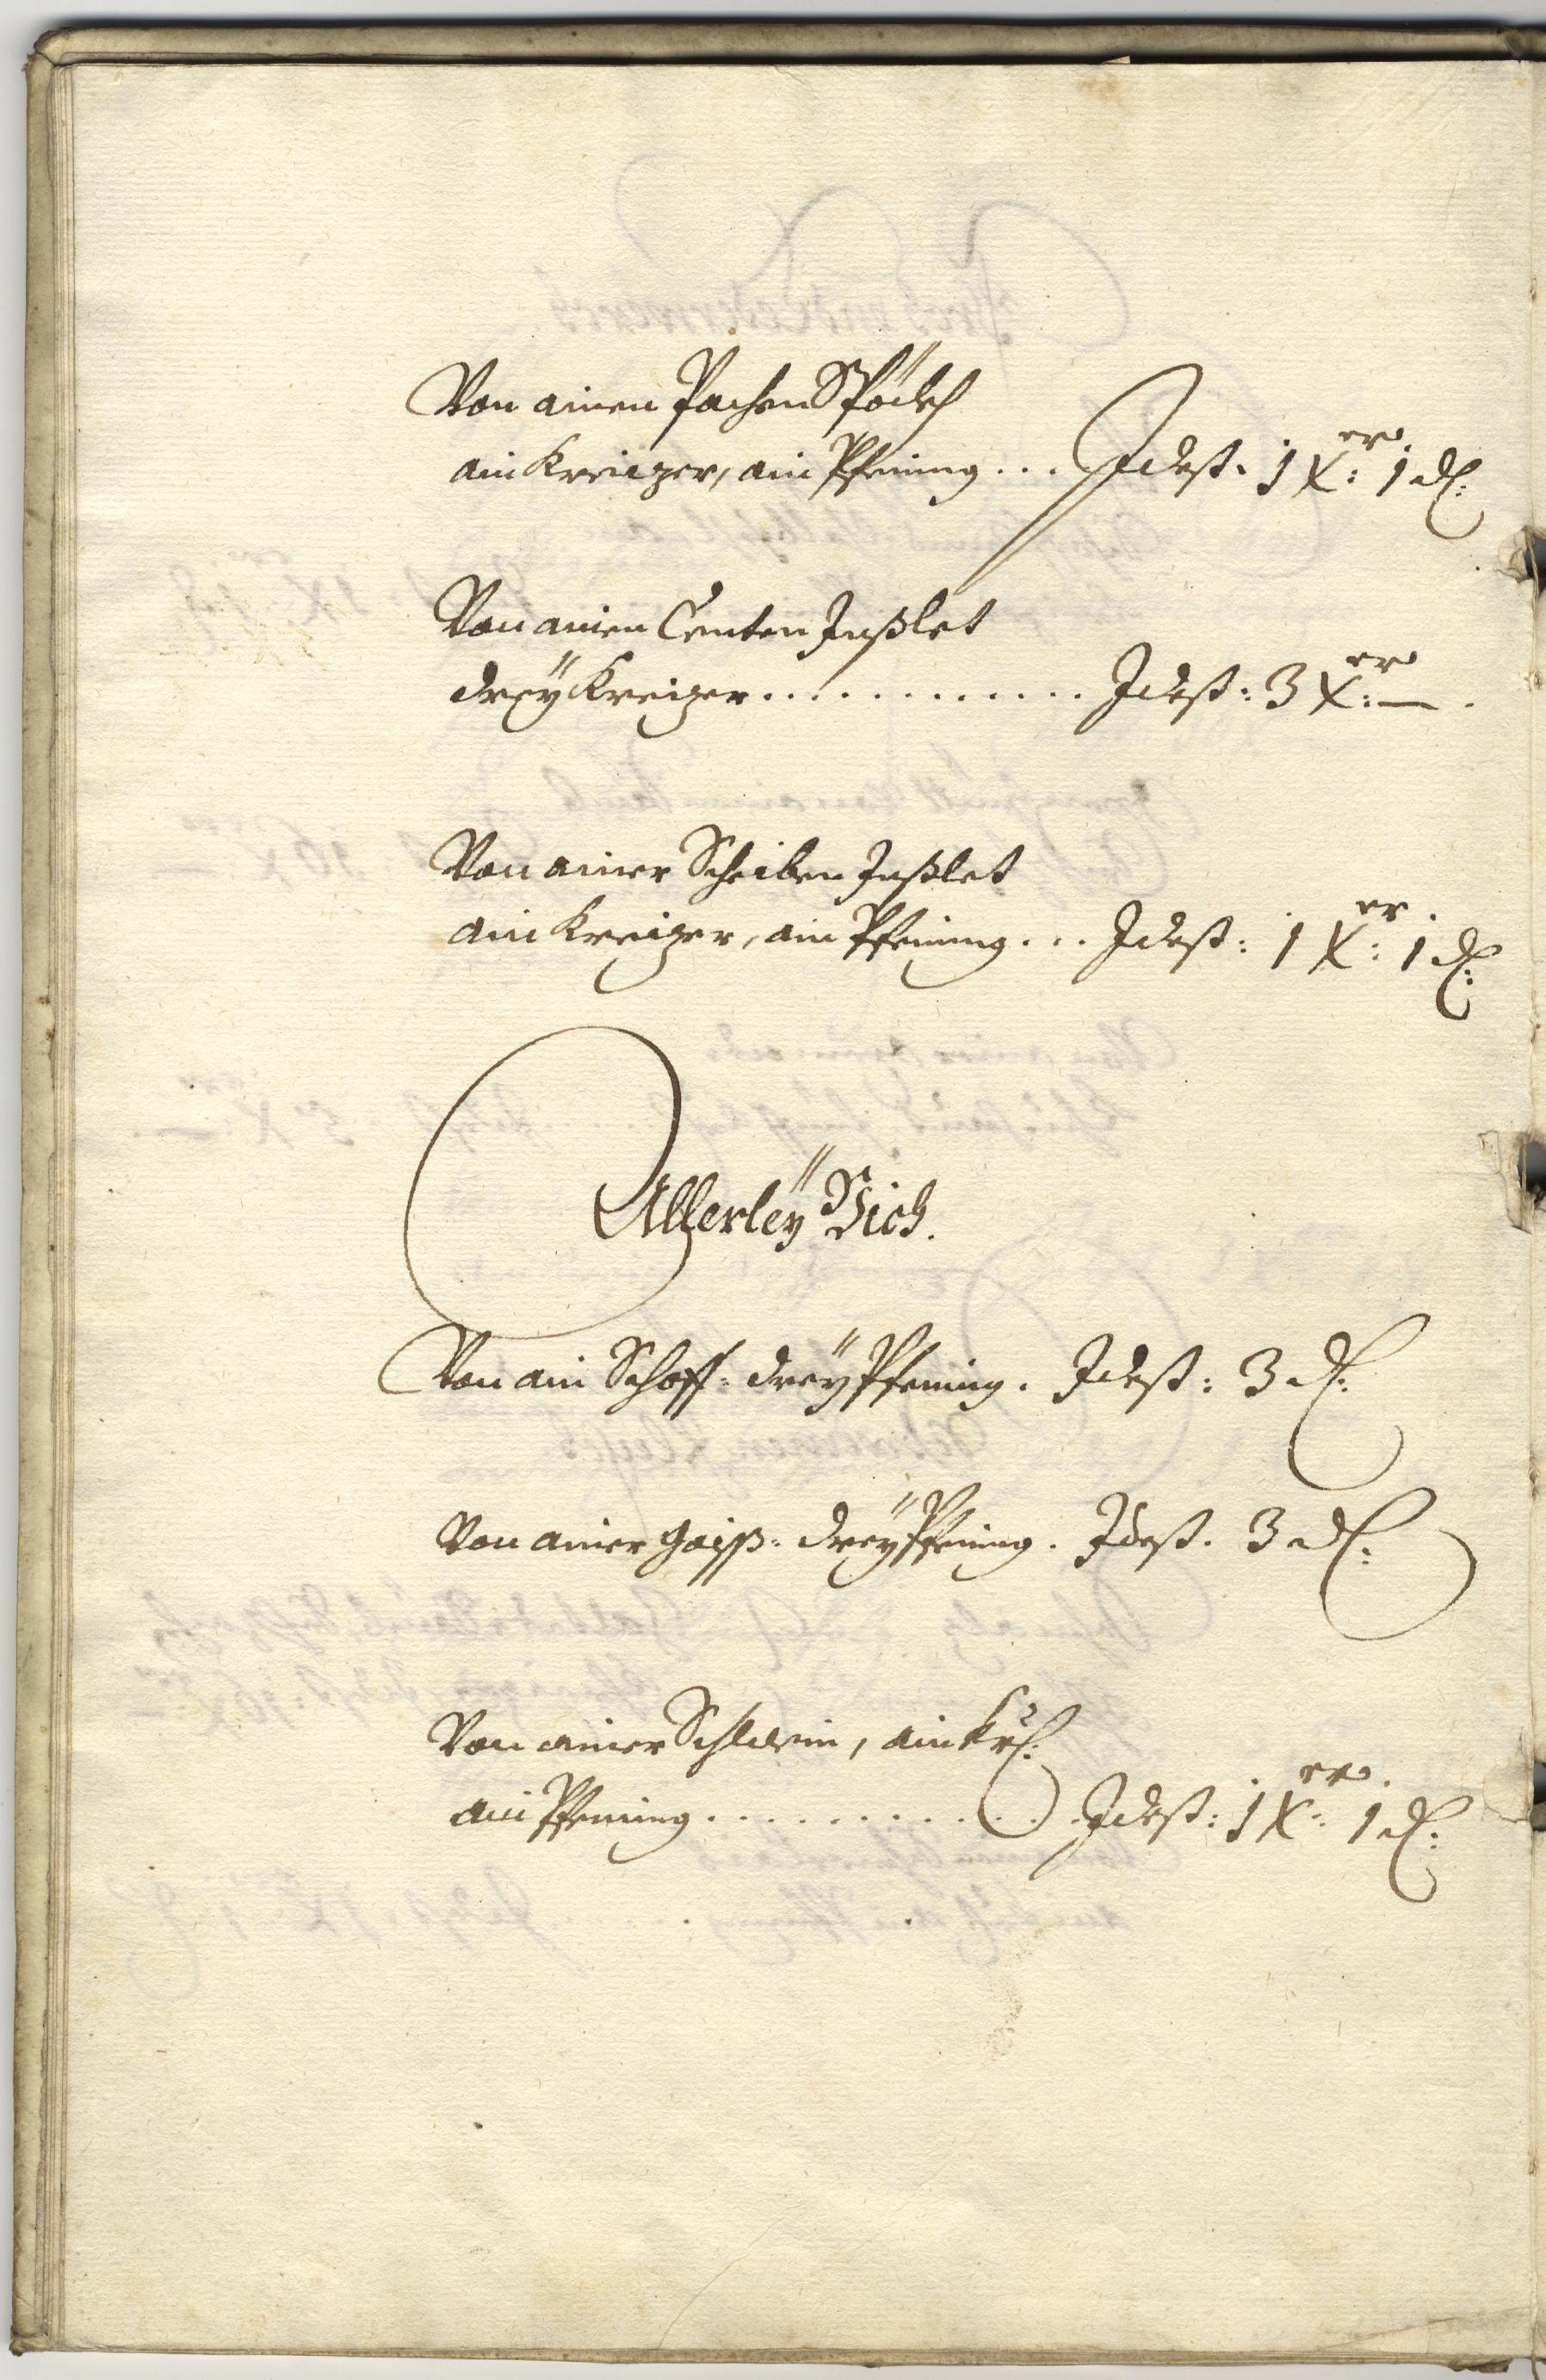 Von ainen Pachen Spöckh
ain Kreizer, ain Pfening ... Idest. 1 X:er 1 d:
Von ainen Centen Inßlet
dreÿ Kreizer ............ Idest: 3 X:er — .
Von ainer Scheiben Inßlet
ain Kreizer, ain Pfening ... Idest: 1 X:er 1 d:
Allerleÿ Vich.
Von ain Schoff: dreÿ Pfening. Idest: 3 d:
Von ainer Gaiß: dreÿ Pfening. Idest. 3 d:
Von ainer Schwein, ain kr:
ain Pfening ............ Idest: 1 X:er 1 d: